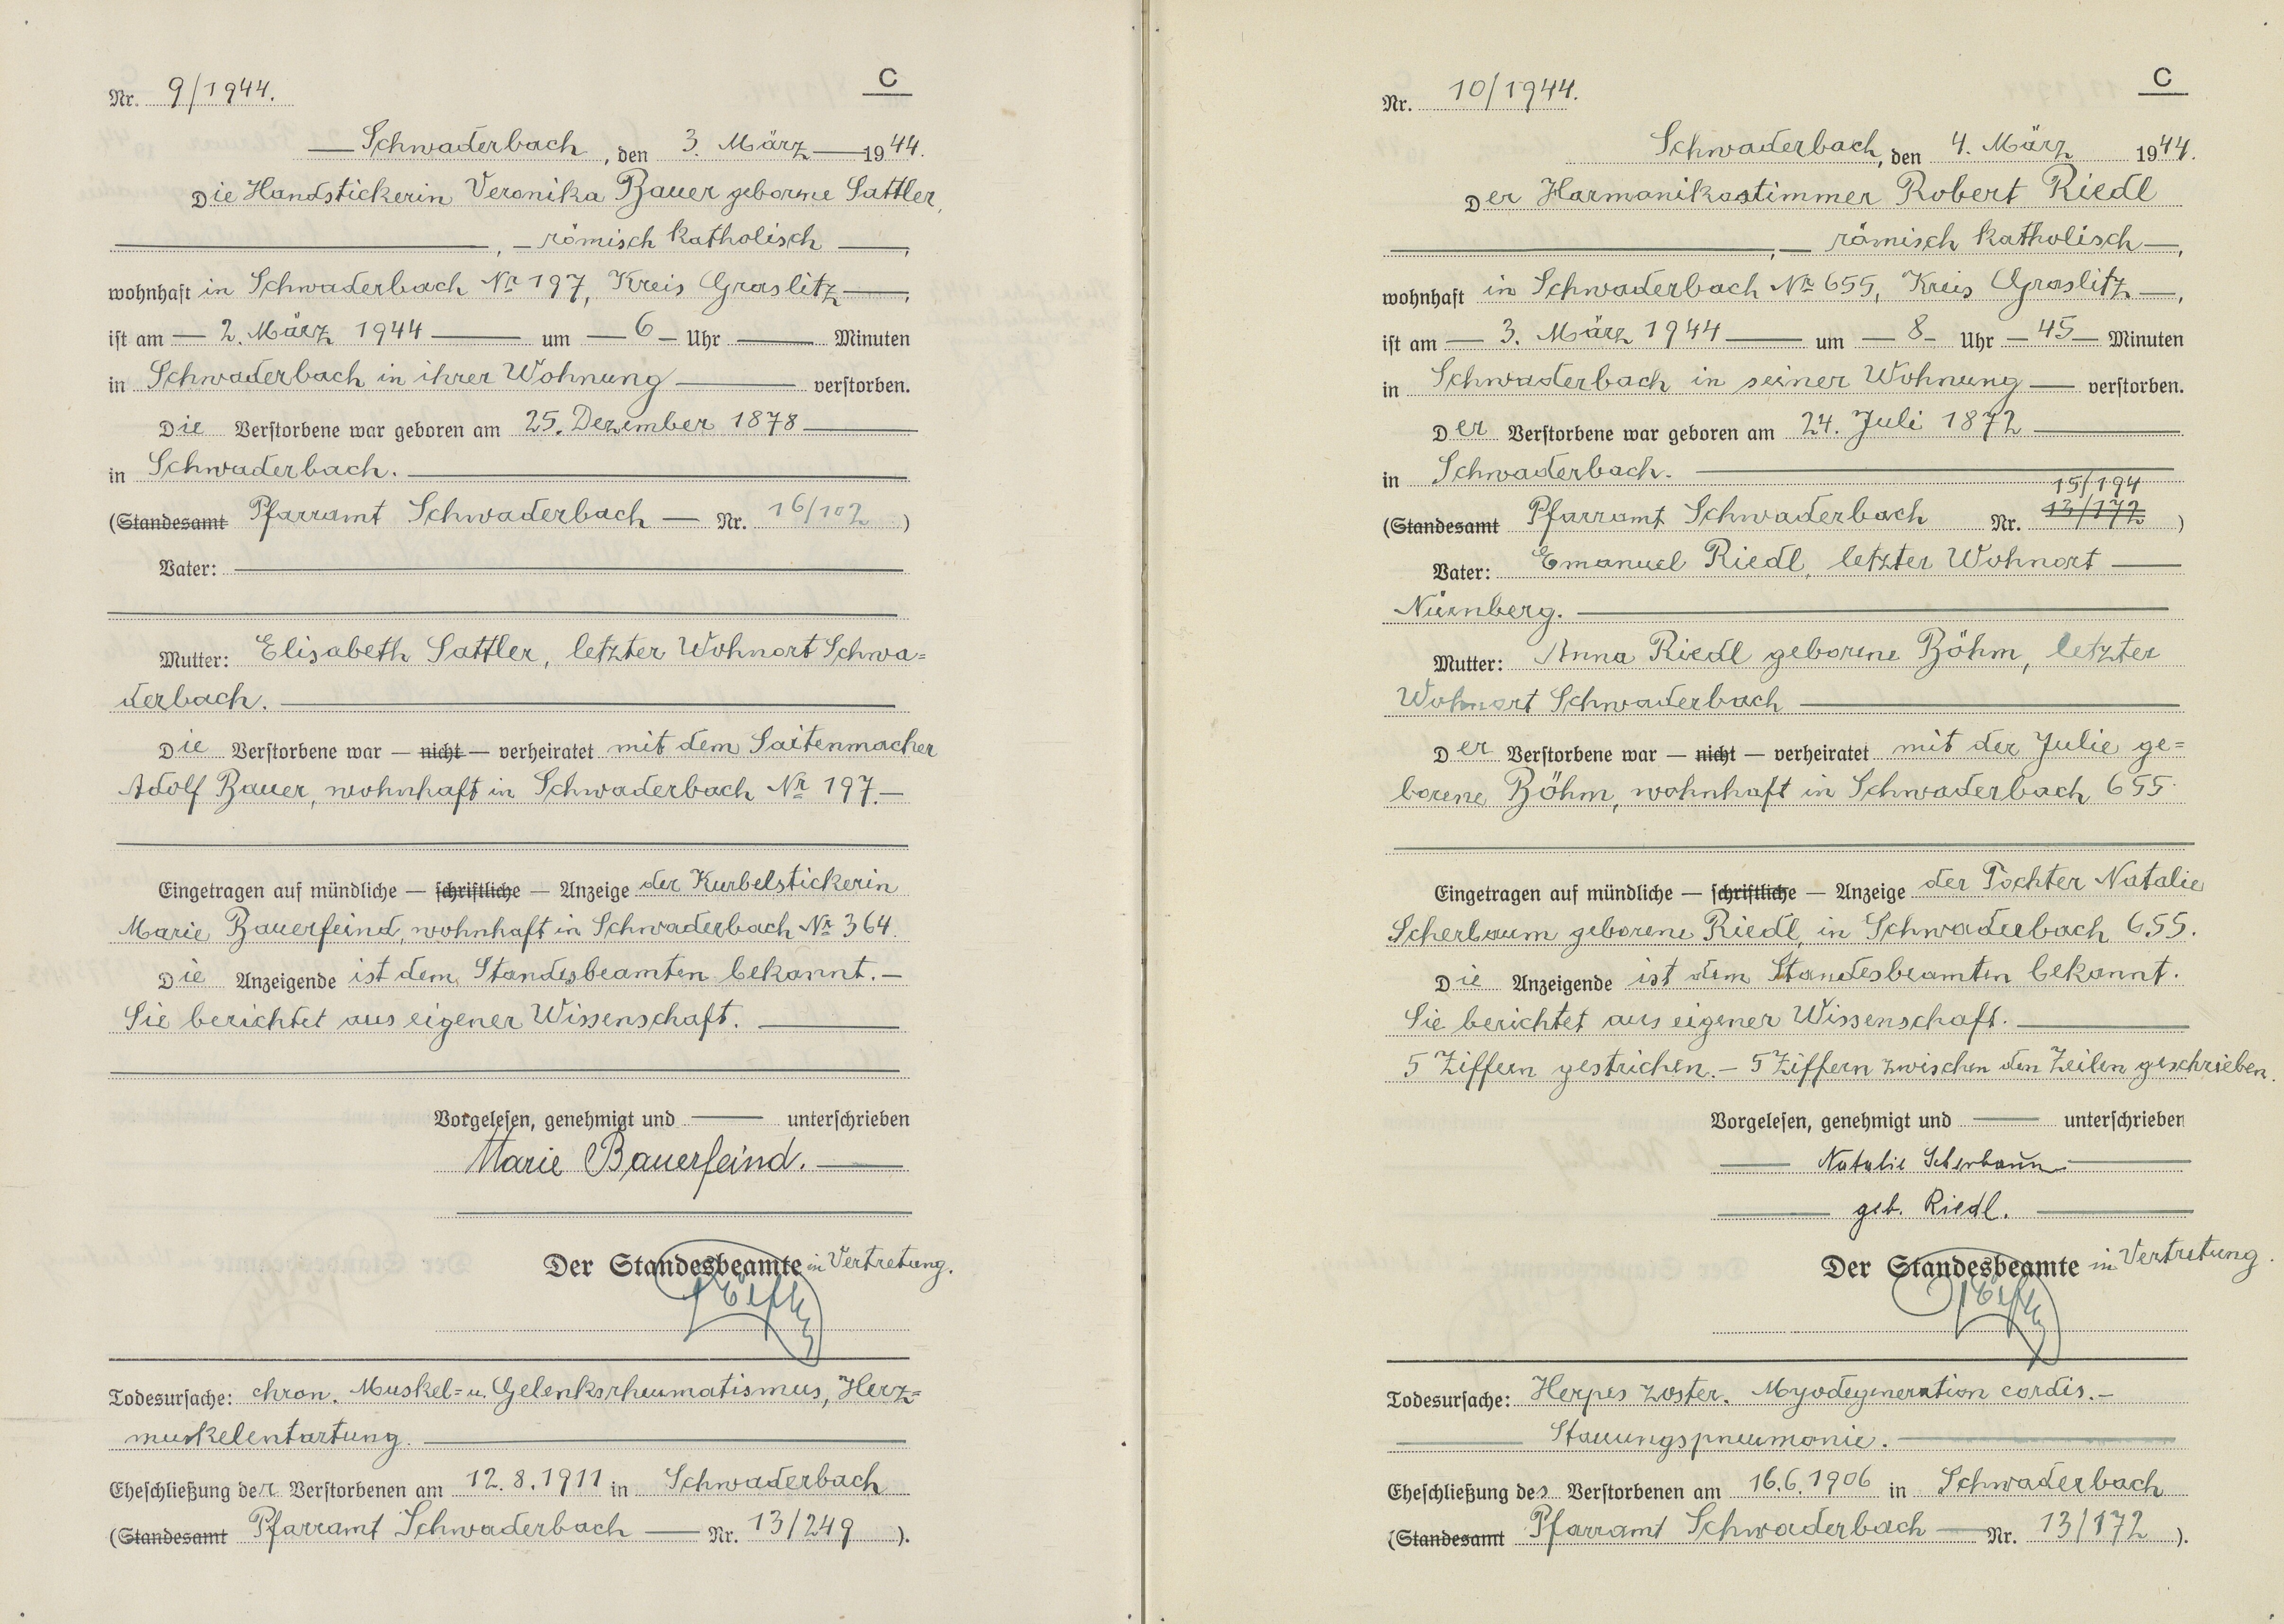 C
Nr. 9/1944.
Schwaderbach, den 3. März 1944.
Die Handstickerin Veronika Bauer geborene Sattler,
, römisch katholisch,
wohnhaft in Schwaderbach Nr 197, Kreis Graslitz,
ist am 2. März 1944 um 6 Uhr Minuten
in Schwaderbach in ihrer Wohnung verstorben.
Die Verstorbene war geboren am 25. Dezember 1878
in Schwaderbach.
(Standesamt Pfarramt Schwaderbach — Nr. 16/102)
Vater:
Mutter: Elisabeth Sattler, letzter Wohnort Schwa=
derbach.
Die Verstorbene war — nicht — verheiratet mit dem Saitenmacher
Adolf Bauer, wohnhaft in Schwaderbach Nr 197.—
Eingetragen auf mündliche — schriftliche — Anzeige der Kurbelstickerin
Marie Bauerfeind, wohnhaft in Schwaderbach Nr 364.
Die Anzeigende ist dem Standesbeamten bekannt.—
Sie berichtet aus eigener Wissenschaft.
Vorgelesen, genehmigt und unterschrieben
Marie Bauerfeind.
Der Standesbeamte in Vertretung.
Todesursache: chron. Muskel= u. Gelenksrheumatismus, Herz=
muskelentartung.
Eheschließung der Verstorbenen am 12.8.1911 in Schwaderbach
(Standesamt Pfarramt Schwaderbach — Nr. 13/249).
C
Nr. 10/1944.
Schwaderbach, den 4. März 1944.
Der Harmonikastimmer Robert Riedl
, römisch katholisch,
wohnhaft in Schwaderbach Nr 655, Kreis Graslitz,
ist am 3. März 1944 um 8 Uhr 45 Minuten
in Schwaderbach in seiner Wohnung verstorben.
Der Verstorbene war geboren am 24. Juli 1872
in Schwaderbach.
15/194
(Standesamt Pfarramt Schwaderbach Nr. 13/172)
Vater: Emanuel Riedl, letzter Wohnort
Nürnberg.
Mutter: Anna Riedl geborene Böhm, letzter
Wohnort Schwaderbach
Der Verstorbene war — nicht — verheiratet mit der Julie ge=
borene Böhm, wohnhaft in Schwaderbach 655.
Eingetragen auf mündliche — schriftliche — Anzeige der Tochter Natalie
Scherbaum geborene Riedl, in Schwaderbach 655.
Die Anzeigende ist dem Standesbeamten bekannt.
Sie berichtet aus eigener Wissenschaft.
5 Ziffern gestrichen.— 5 Ziffern zwischen den Zeilen geschrieben.
Vorgelesen, genehmigt und unterschrieben
Natalie Scherbaum
geb. Riedl.
Der Standesbeamte in Vertretung.
Todesursache: Herpes zoster. Myodegeneration cordis.—
Stauungspneumonie.
Eheschließung des Verstorbenen am 16.6.1906 in Schwaderbach
(Standesamt Pfarramt Schwaderbach — Nr. 13/172).